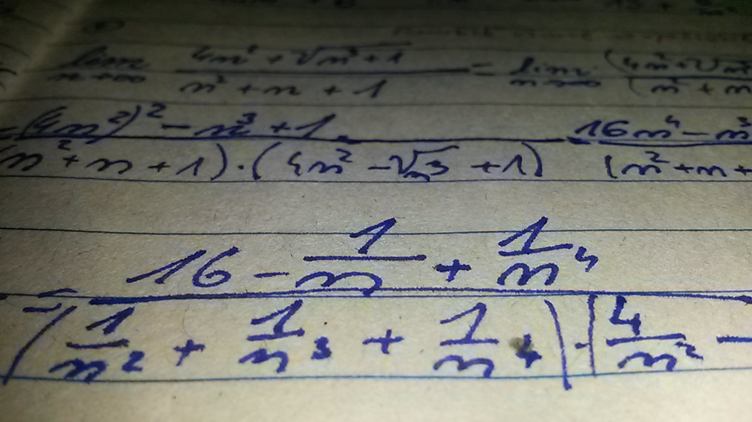 lim n→∞ (4n² + √(n³+1)) / (n² + n + 1) = lim n→∞ (4n² + √n
= ((4n²)² - n³ + 1) / ((n² + n + 1)·(4n² - √n³ + 1)) = (16n⁴ - n³ / (n² + n +
= (16 - 1/n + 1/n⁴) / ((1/n² + 1/n³ + 1/n⁴)·(4/n² -